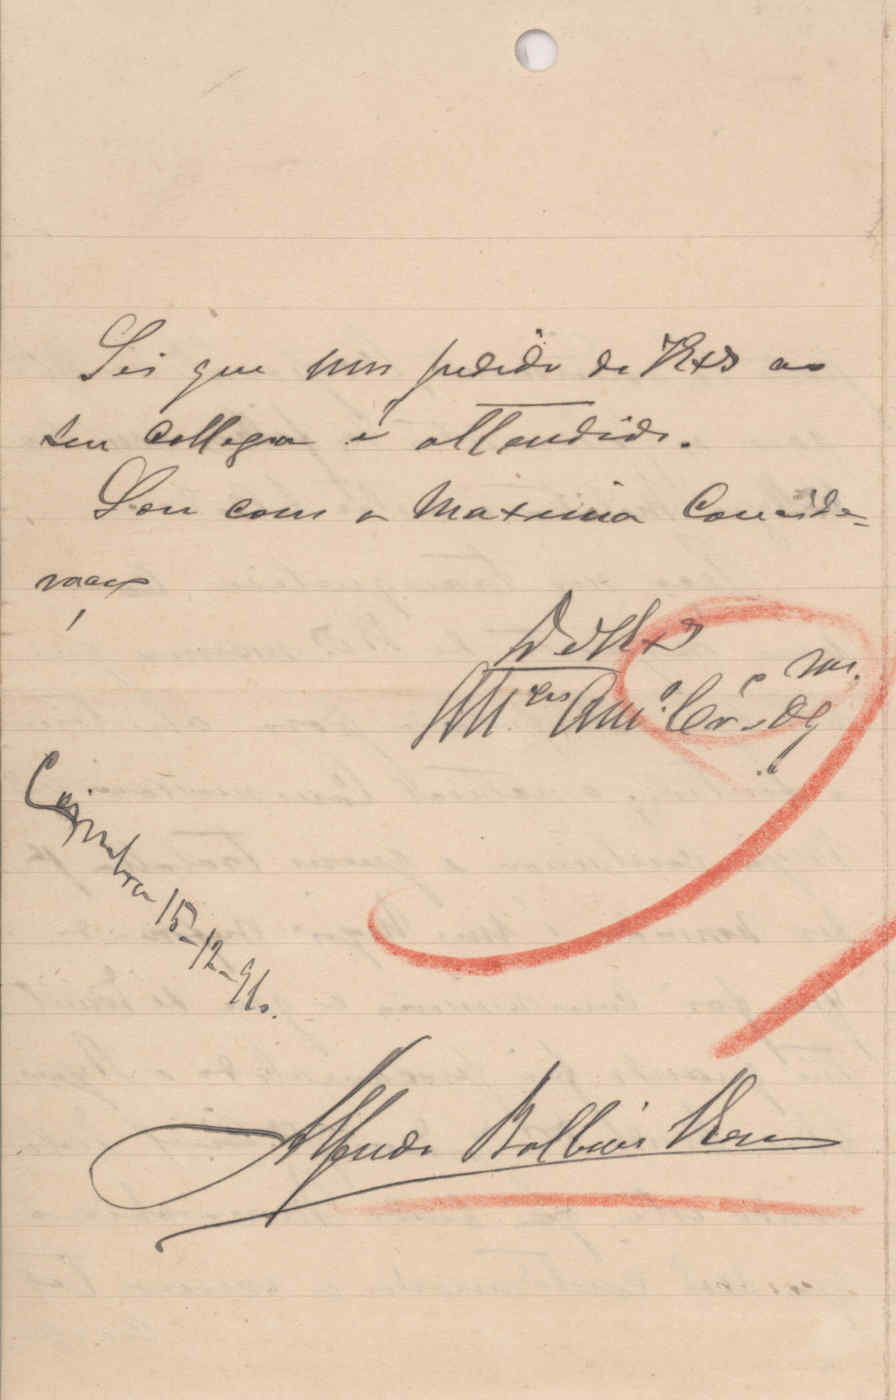 Sei que um pedido de VExª ao
seu collega é attendido.
Sou com a maxima conside-
ração
De VExª
Mto Amo Cro
Coimbra 15-12-96.
Alfredo